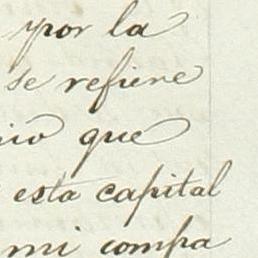 por la
se refiere
que
esta capital
mi compa